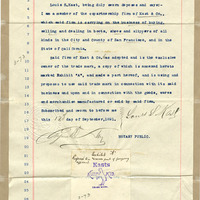 Louis S. Kast, being duly sworn deposes and says:-
I am a member of the copartnership firm of Kast & Co.,
which said firm is carrying on the business of buying,
selling and dealing in boots, shoes and slippers of all
kinds in the City and County of San Francisco, and in the
State of California.
Said firm of Kast & Co. has adopted and is the exclusive
owner of the trade mark, a copy of which is annexed hereto
marked Exhibit "A", and made a part hereof, and is using
and proposes to use said trade mark in connection with its said
business and upon and in connection with the goods, wares
and merchandise manufactured or sold by said firm.
Subscribed and sworn to before me
this day of September, 1901.
Louis S. Kast
NOTARY PUBLIC.
Kasts